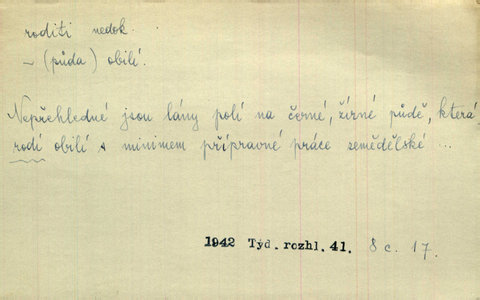 roditi nedok.
– (půda) obilí.
Nepřehledné jsou lány polí na černé, žírné půdě, která
rodí obilí s minimem přípravné práce zemědělské ...
1942 Týd. rozhl. 41. 8 c. 17.